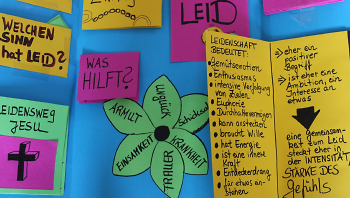 WELCHEN
SINN
hat LEID?
LEID
WAS
HILFT?
LEIDENSWEG
JESU
ARMUT
UNGLÜCK
Schicksal
KRANKHEIT
TRAUER
EINSAMKEIT
LEIDENSCHAFT
BEDEUTET:
Gemütsemotion
Enthusiasmus
intensive Verfolgung
von Zielen
Euphorie
Durchhaltevermögen
kann anstecken
braucht Wille
hat Energie
ist eine innere
Kraft
Entdeckerdrang
für etwas ein-
stehen
eher ein
positiver
Begriff
ist eher eine
Ambition, ein
Interesse an
etwas
eine Gemeinsam-
keit zum Leid
steckt eher in
der INTENSITÄT
STÄRKE DES
Gefühls